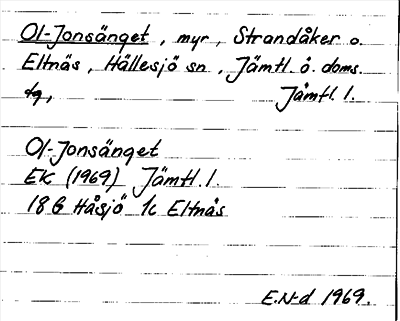 Ol-Jonsänget, myr, Strandåker o.
Eltnäs, Hällesjö sn, Jämtl. ö. doms.
tg, Jämtl. l.
Ol-Jonsänget
EK (1969) Jämtl. l.
18 G Håsjö 1c Eltnäs
E.N-d 1969.